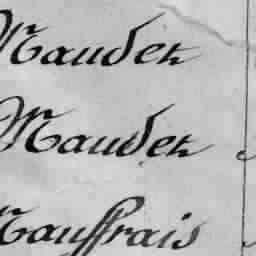 Maudet
Maudet
Mauffrais